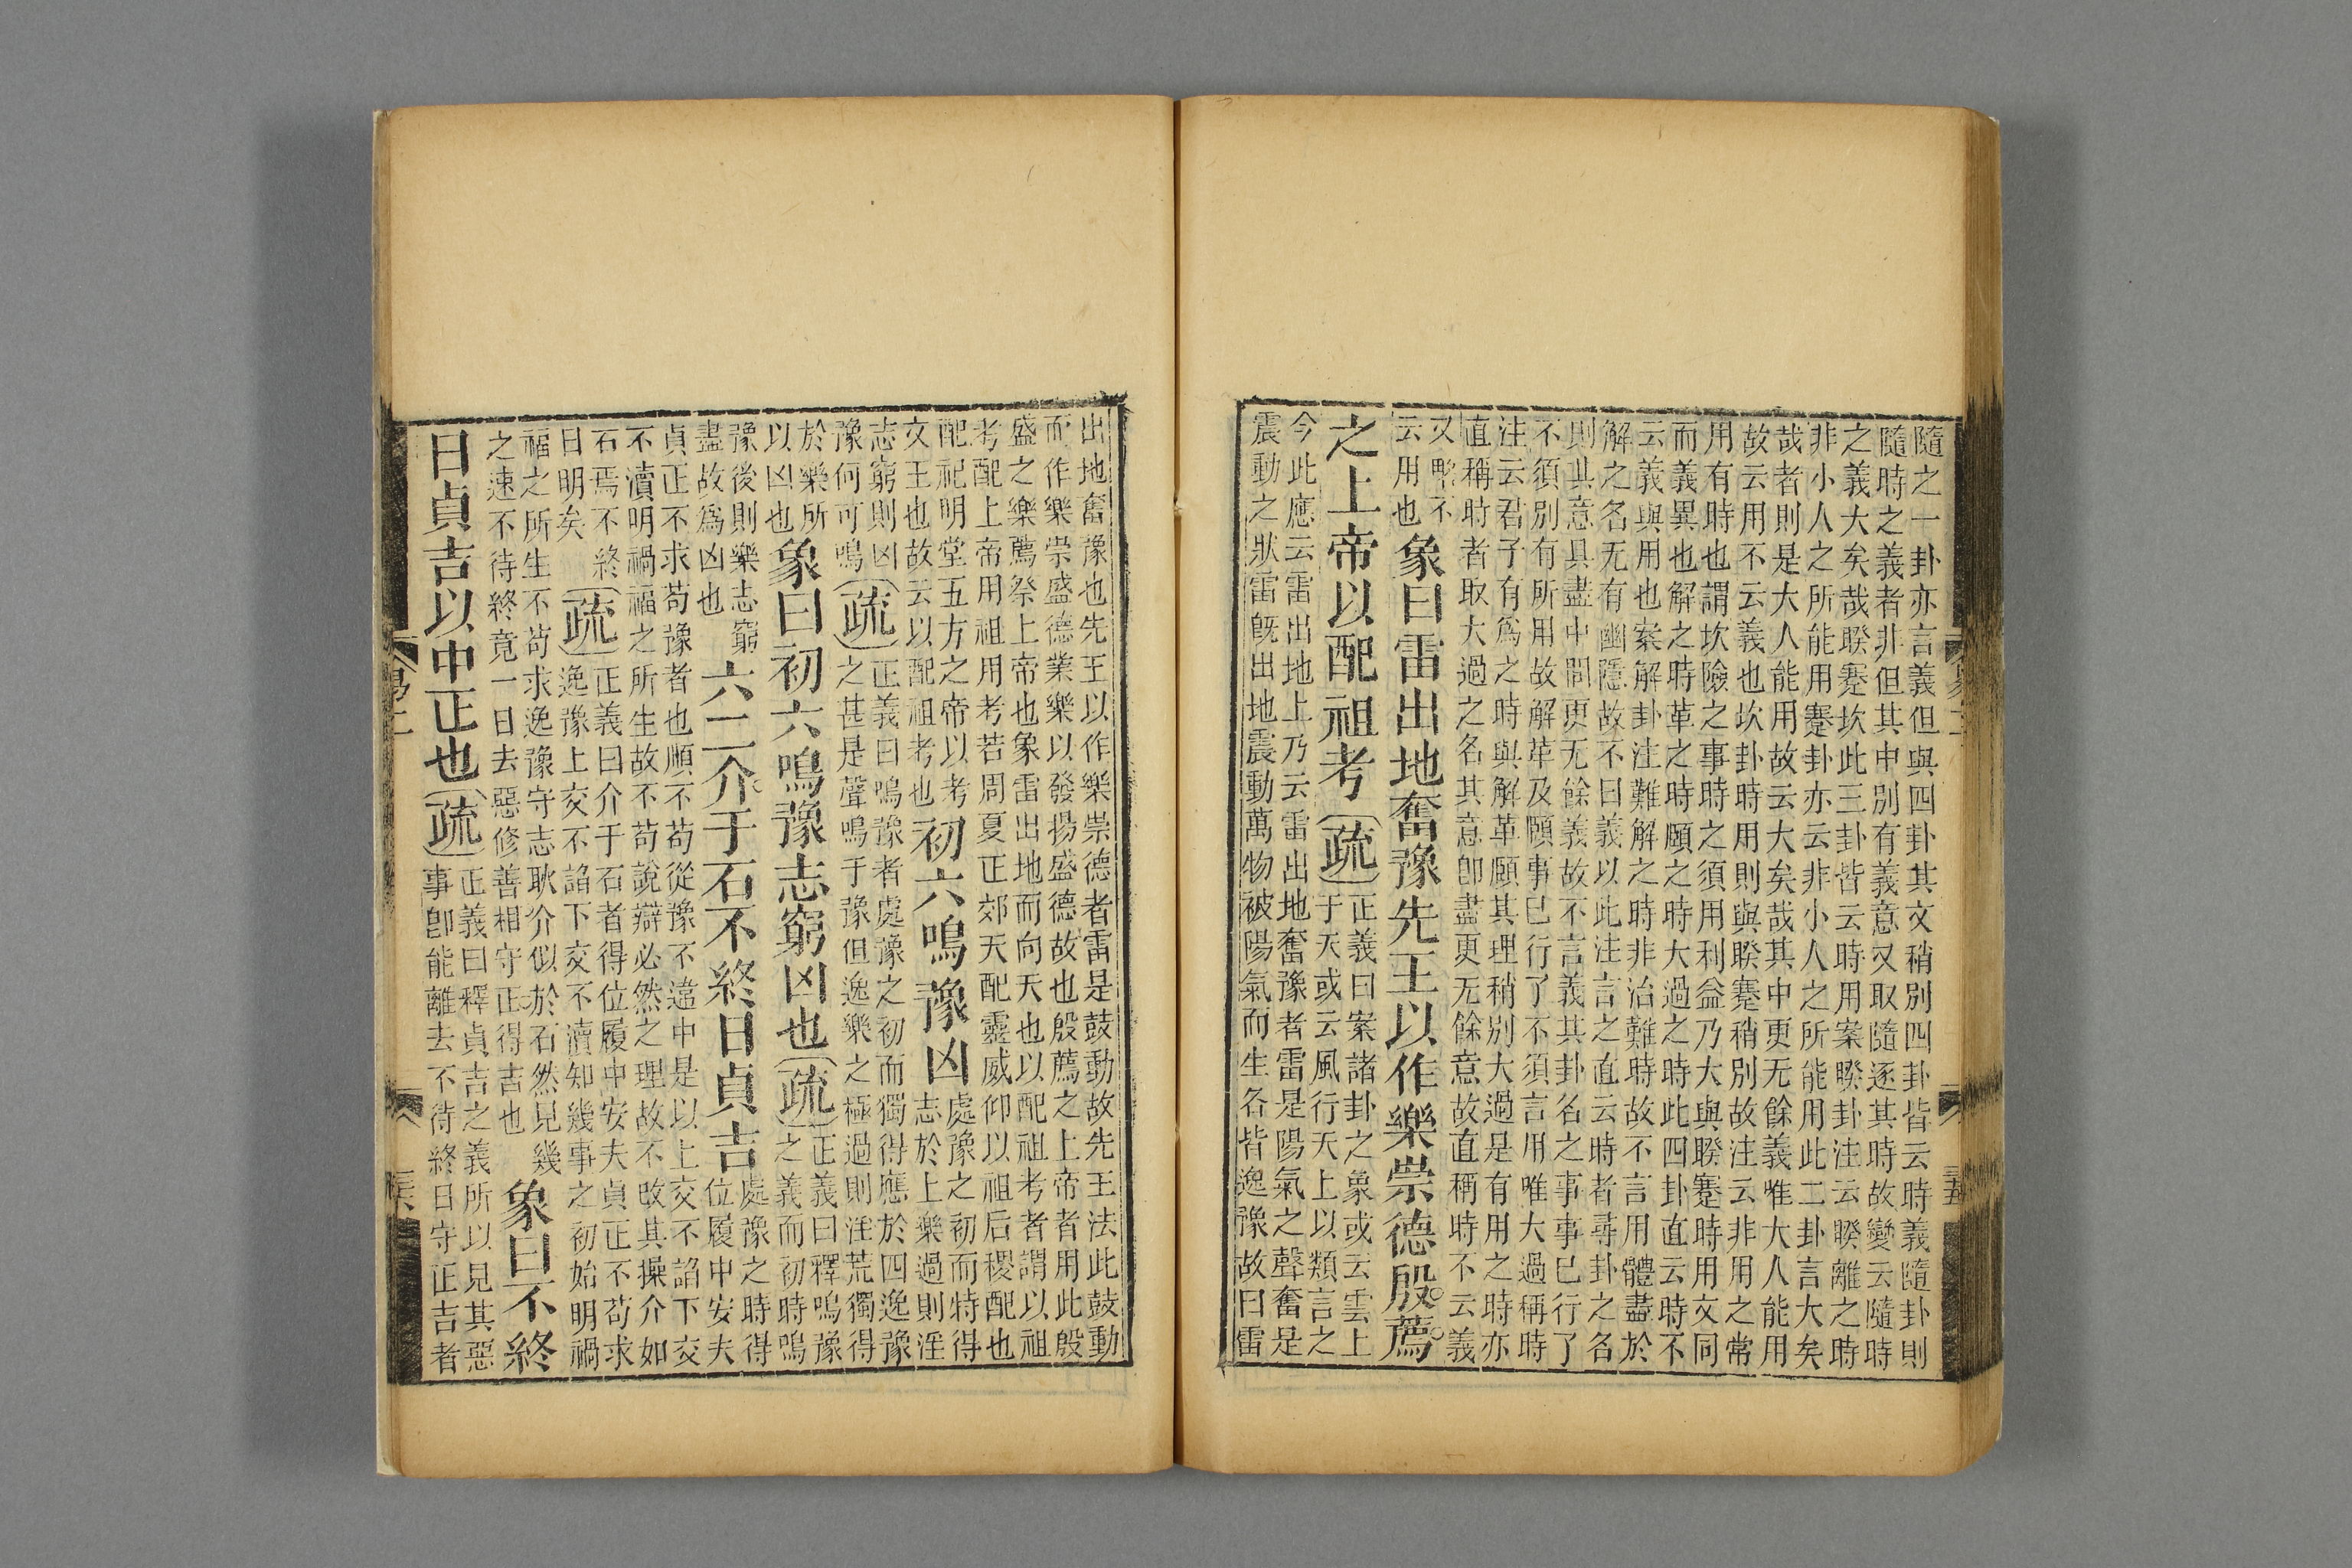 隨之一卦亦言義但與四卦其文稍別四卦皆云時義隨卦則
隨時之義者非但其中別有義意又取隨逐其時故變云隨時
之義大矣哉睽蹇坎此三卦皆云時用案睽卦注云睽離之時
非小人之所能用蹇卦亦云非小人之所能用此二卦言大矣
哉者則是大人能用故云大矣哉其中更无餘義唯大人能用
故云用不云義也坎卦時用則與睽蹇稍別故注云非用之常
用有時也謂坎險之事時之須用利益乃大與睽蹇時用文同
而義異也解之時革之時頤之時大過之時此四卦直云時不
云義與用也案解卦注難解之時非治難時故不言用體盡於
解之名无有幽隱故不曰義以此注言之直云時者尋卦之名
則其意具盡中間更无餘義故不言義其卦名之事事已行了
不須別有所用故解革及頤事已行了不須言用唯大過稱時
注云君子有爲之時與解革頤其理稍別大過是有用之時亦
直稱時者取大過之名其意卽盡更无餘意故直稱時不云義
又略不
云用也
象曰雷出地奮豫先王以作樂崇德殷薦
之上帝以配祖考疏
正義曰案諸卦之象或云雲上
于天或云風行天上以類言之
今此應云雷出地上乃云雷出地奮豫者雷是陽氣之聲奮是
震動之狀雷旣出地震動萬物被陽氣而生各皆逸豫故曰雷
易二
三五
出地奮豫也先王以作樂崇德者雷是鼓動故先王法此鼓動
而作樂崇盛德業樂以發揚盛德故也殷薦之上帝者用此殷
盛之樂薦祭上帝也象雷出地而向天也以配祖考者謂以祖
考配上帝用祖用考若周夏正郊天配靈威仰以祖后稷配也
配祀明堂五方之帝以考
文王也故云以配祖考也
初六鳴豫凶
處豫之初而特得
志於上樂過則淫
志窮則凶
豫何可鳴
疏
正義曰鳴豫者處豫之初而獨得應於四逸豫
之甚是聲鳴于豫但逸樂之極過則淫荒獨得
於樂所
以凶也
象曰初六鳴豫志窮凶也疏
正義曰釋鳴豫
之義而初時鳴
豫後則樂志窮
盡故爲凶也
六二介于石不終日貞吉
處豫之時得
位履中安夫
貞正不求苟豫者也順不苟從豫不違中是以上交不諂下交
不瀆明禍福之所生故不苟說辯必然之理故不改其操介如
石焉不終
日明矣
疏
正義曰介于石者得位履中安夫貞正不苟求
逸豫上交不諂下交不瀆知幾事之初始明禍
福之所生不苟求逸豫守志耿介似於石然見幾
之速不待終竟一日去惡修善相守正得吉也
象曰不終
日貞吉以中正也疏
正義曰釋貞吉之義所以見其惡
事卽能離去不待終日守正吉者